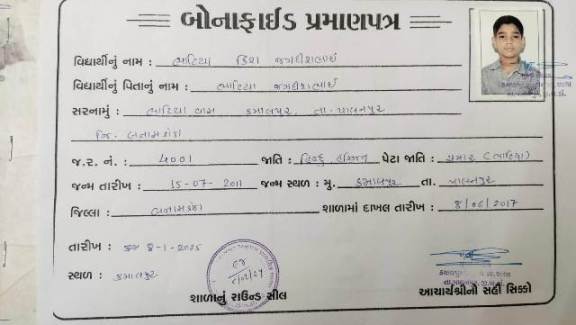 બોનાફાઈડ પ્રમાણપત્ર
વિદ્યાર્થીનું નામ : ભાટિયા જગદીશભાઈ
વિદ્યાર્થીનું પિતાનું નામ : ભાટિયા જગદીશભાઈ
સરનામું : ભાટિયા વાસ કમાલપુર, તા-પાલનપુર
જિ- બનાસકાંઠા
જ.ર. નં. : 4001 જાતિ : હિન્દુ પેટા જાતિ : ચમાર (ભાટિયા)
જન્મ તારીખ : 15-07-2011 જન્મ સ્થળ : મુ. કમાલપુર તા. પાલનપુર
જિલ્લા : બનાસકાંઠા શાળામાં દાખલ તારીખ : 8/06/2017
તારીખ : 8-1-2025
સ્થળ : કમાલપુર
શાળાનું રાઉન્ડ સીલ
આચાર્યશ્રીનો સહી સિક્કો